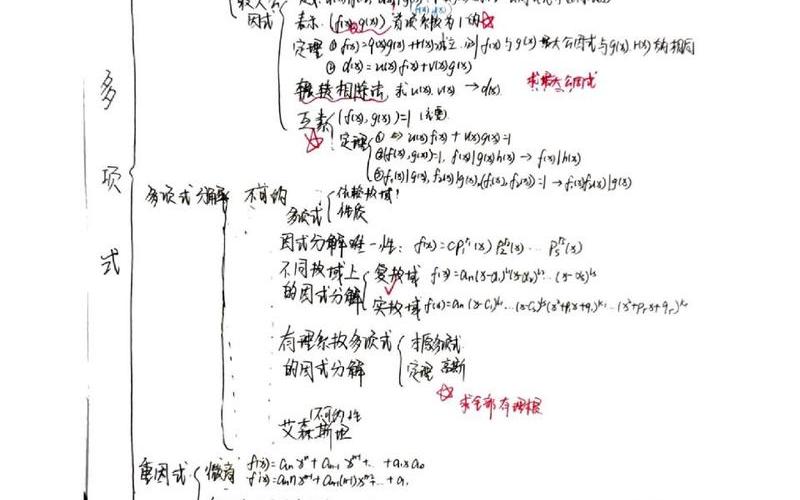 因式
表示. (f(x), g(x)) 首项系数为1的
定理 ① f(x)=q(x)g(x)+r(x)成立, 则 f(x)与g(x)最大公因式与g(x), r(x)的相同
② d(x)=u(x)f(x)+v(x)g(x)
辗转相除法, 求u(x), v(x) → d(x).
求最大公因式
互素 (f(x), g(x))=1
定理 ① ⇔ u(x)f(x)+v(x)g(x)=1
②(f(x), g(x))=1, f(x)|g(x)h(x) → f(x)|h(x)
③f₁(x)|g(x), f₂(x)|g(x), (f₁(x), f₂(x))=1 → f₁(x)f₂(x)|g(x)
多项式
多项式分解 不可约
多项式
依赖数域!
性质
因式分解唯一性: f(x)=cp₁^r₁(x) p₂^r₂(x) ... pₛ^rₛ(x)
不同数域上
的因式分解
复数域 f(x)=aₙ(x-α₁)^l₁(x-α₂)^l₂... (x-αₛ)^lₛ
实数域 f(x)=aₙ(x-c₁)^l₁...(x-cₛ)^lₛ(x²+p₁x+q₁)^k₁...(x²+pᵣx+qᵣ)^kᵣ
有理系数多项式
的因式分解
本原多项式
定理 高斯
求全部有理根
(不可约性
艾森斯坦
重因式 微商
f(x)=aₙxⁿ+aₙ₋₁xⁿ⁻¹+...+a₁x a₀
f'(x)=aₙnxⁿ⁻¹+aₙ₋₁(n-1)xⁿ⁻²+...+a₁